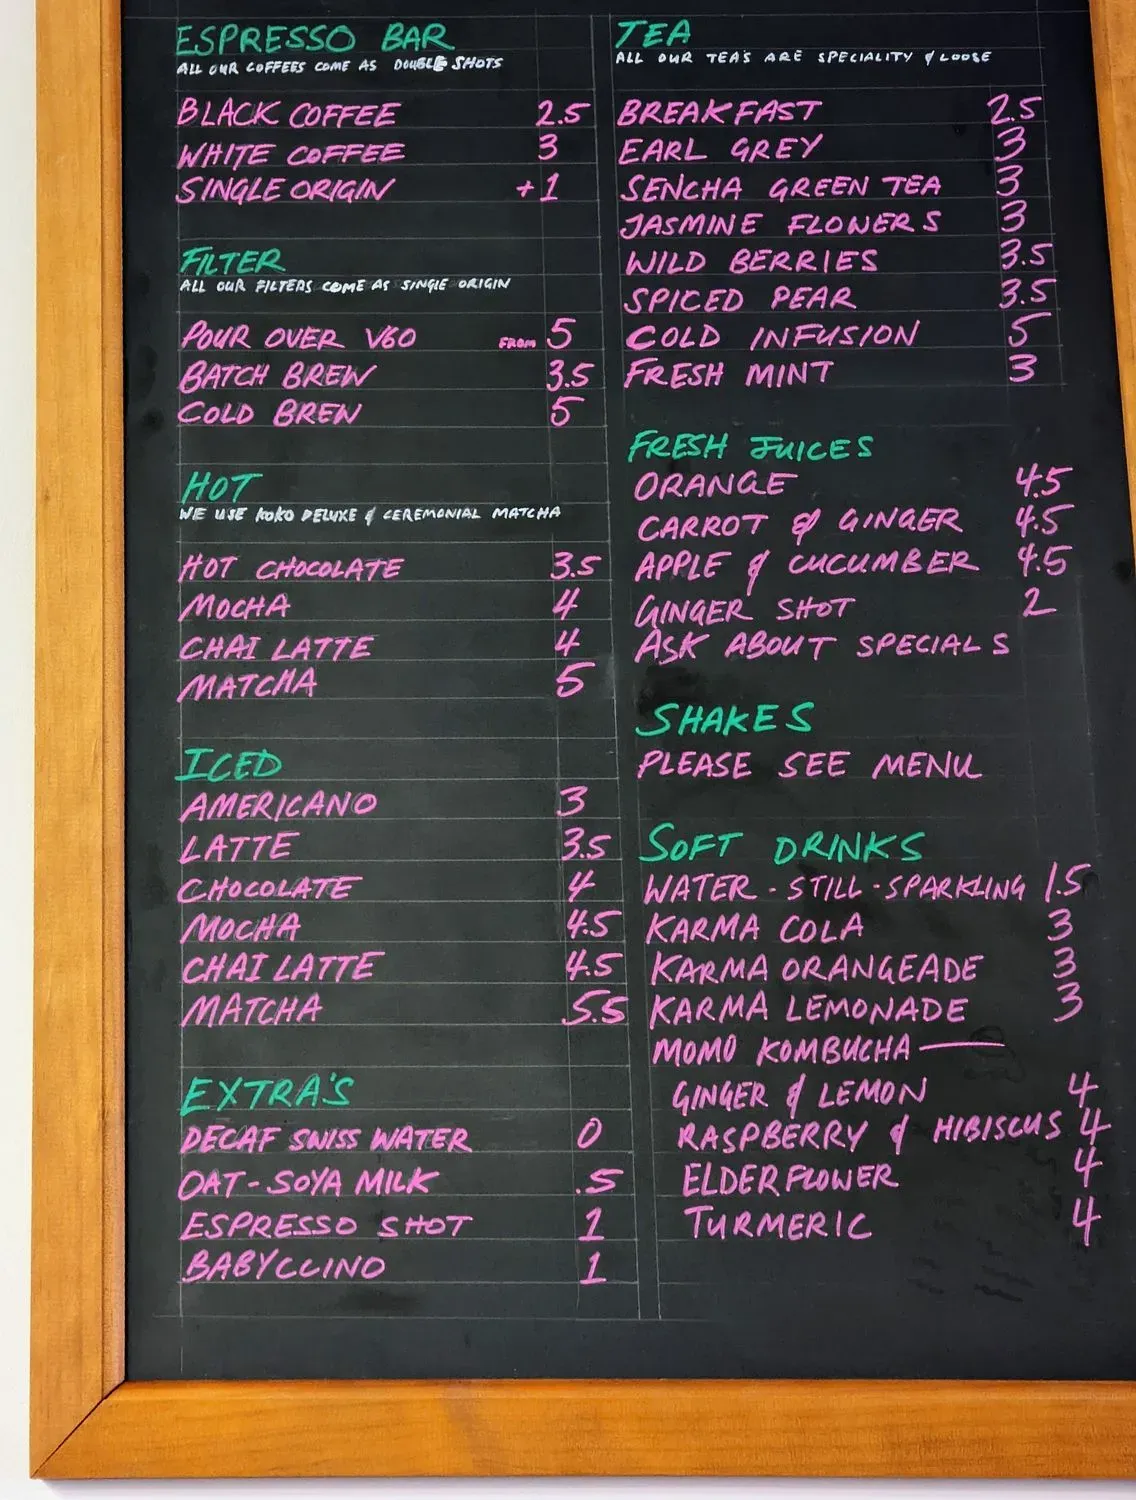 ESPRESSO BAR
ALL OUR COFFEES COME AS DOUBLE SHOTS
BLACK COFFEE 2.5
WHITE COFFEE 3
SINGLE ORIGIN +1
FILTER
ALL OUR FILTERS COME AS SINGLE ORIGIN
POUR OVER V60 FROM 5
BATCH BREW 3.5
COLD BREW 5
HOT
WE USE KOKO DELUXE & CEREMONIAL MATCHA
HOT CHOCOLATE 3.5
MOCHA 4
CHAI LATTE 4
MATCHA 5
ICED
AMERICANO 3
LATTE 3.5
CHOCOLATE 4
MOCHA 4.5
CHAI LATTE 4.5
MATCHA 5.5
EXTRA'S
DECAF SWISS WATER 0
OAT-SOYA MILK .5
ESPRESSO SHOT 1
BABYCCINO 1
TEA
ALL OUR TEA'S ARE SPECIALITY & LOOSE
BREAKFAST 2.5
EARL GREY 3
SENCHA GREEN TEA 3
JASMINE FLOWERS 3
WILD BERRIES 3.5
SPICED PEAR 3.5
COLD INFUSION 5
FRESH MINT 3
FRESH JUICES
ORANGE 4.5
CARROT & GINGER 4.5
APPLE & CUCUMBER 4.5
GINGER SHOT 2
ASK ABOUT SPECIALS
SHAKES
PLEASE SEE MENU
SOFT DRINKS
WATER - STILL - SPARKLING 1.5
KARMA COLA 3
KARMA ORANGEADE 3
KARMA LEMONADE 3
MOMO KOMBUCHA —
GINGER & LEMON 4
RASPBERRY & HIBISCUS 4
ELDERFLOWER 4
TURMERIC 4